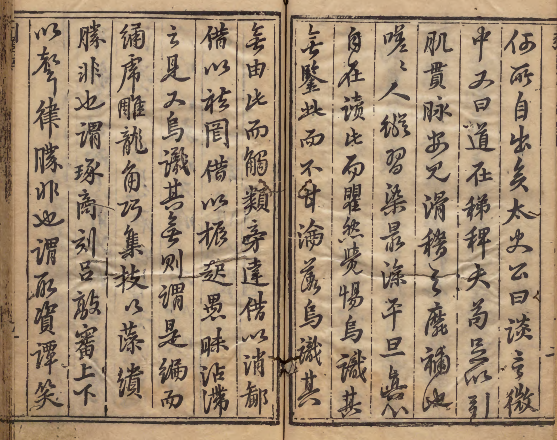 何所自出矣太史公曰談言微
中又曰道在稊稗夫苟足以引
肌貫脉安見滑稽之靡補也
嗟〻人縱習染最深平旦具
自在讀此而瞿然覺惕烏識其
無鑒此而不甘淪落烏識其
無由此而觸類旁達借以消鄙
借以祛罔借以振起愚昧沾滯
之見又烏識其無則謂是編而
繡虎雕龍角巧集枝以藻繢
勝非也謂琢商刻呂敲審上下
以聲律勝非也謂取資譚笑